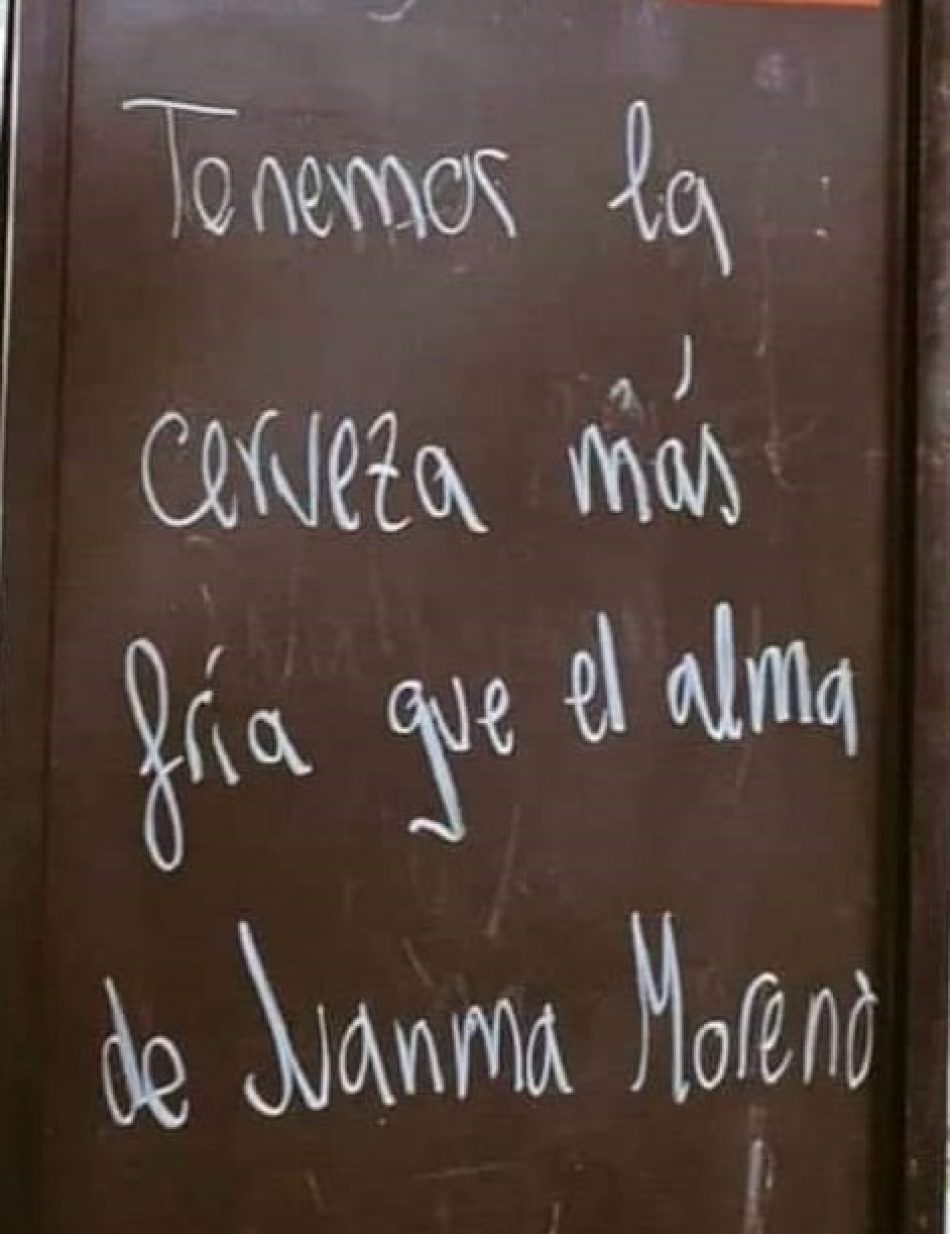 Tenemos la
cerveza más
fría que el alma
de Juanma Moreno